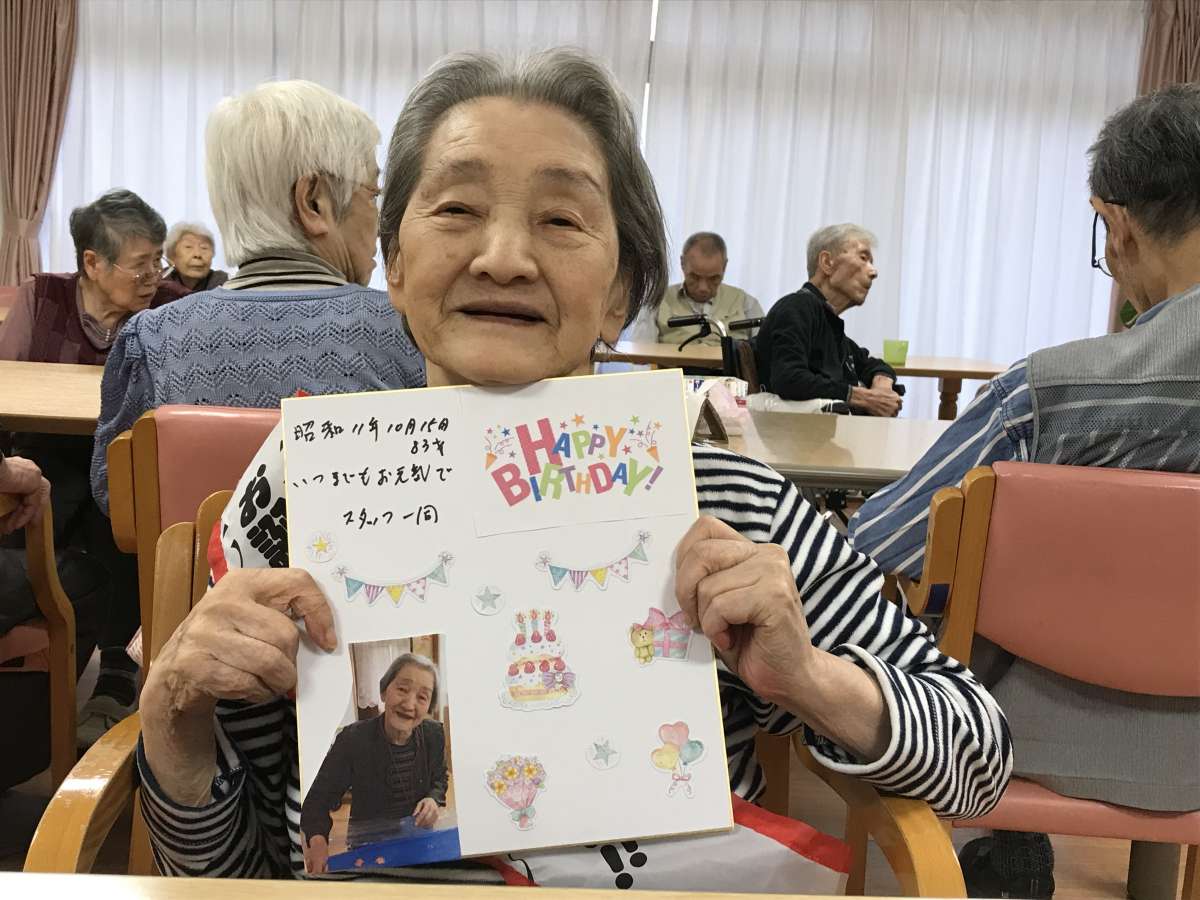 昭和11年10月15日
83才
いつまでもお元気で
スタッフ一同
HAPPY
BIRTHDAY!
お
!!